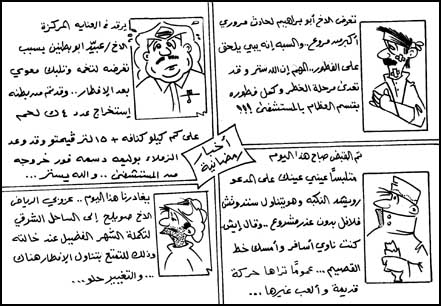 تعرض الأخ أبو براهيم لحادث مروري
أكبر من مروع.. والسبة إنه يبي يلحق
على الفطور.. المهم إن الله ستر وقد
تعدى مرحلة الخطر وكمل فطوره
بقسم العظام بالمستشفى !!!
يرقد في العناية المركزة
الأخ / عبيّد أبو بطنين بسبب
تعرضه لتخمة وتلبك معوي
بعد الإفطار.. وقد تم من بطنه
إستخراج عدد ٤ ك لحم
على كم كيلو كنافة + ١٥ لتر فيمتو وقد وعد
الزملاء بوليمة دسمة فور خروجه
من المستشفى .. والله يستر...
أخبار
رمضانية
تم القبض صباح هذا اليوم
متلبساً عيني عينك على المدعو
رويشد النكبة وهو يتناول سندوتش
فلافل بدون عذر مشروع.. وقال إيش
كنت ناوي أسافر وأمسك خط
القصيم... عموماً تراها حركة
قديمة وألعب غيرها...
يغادرنا هذا اليوم.. عزوبي الرياض
الأخ صويلح إلى الساحل الشرقي
لتكملة الشهر الفضيل عند خالته
وذلك للتمتع بتناول الإفطار هناك
... والتغيير حلو...